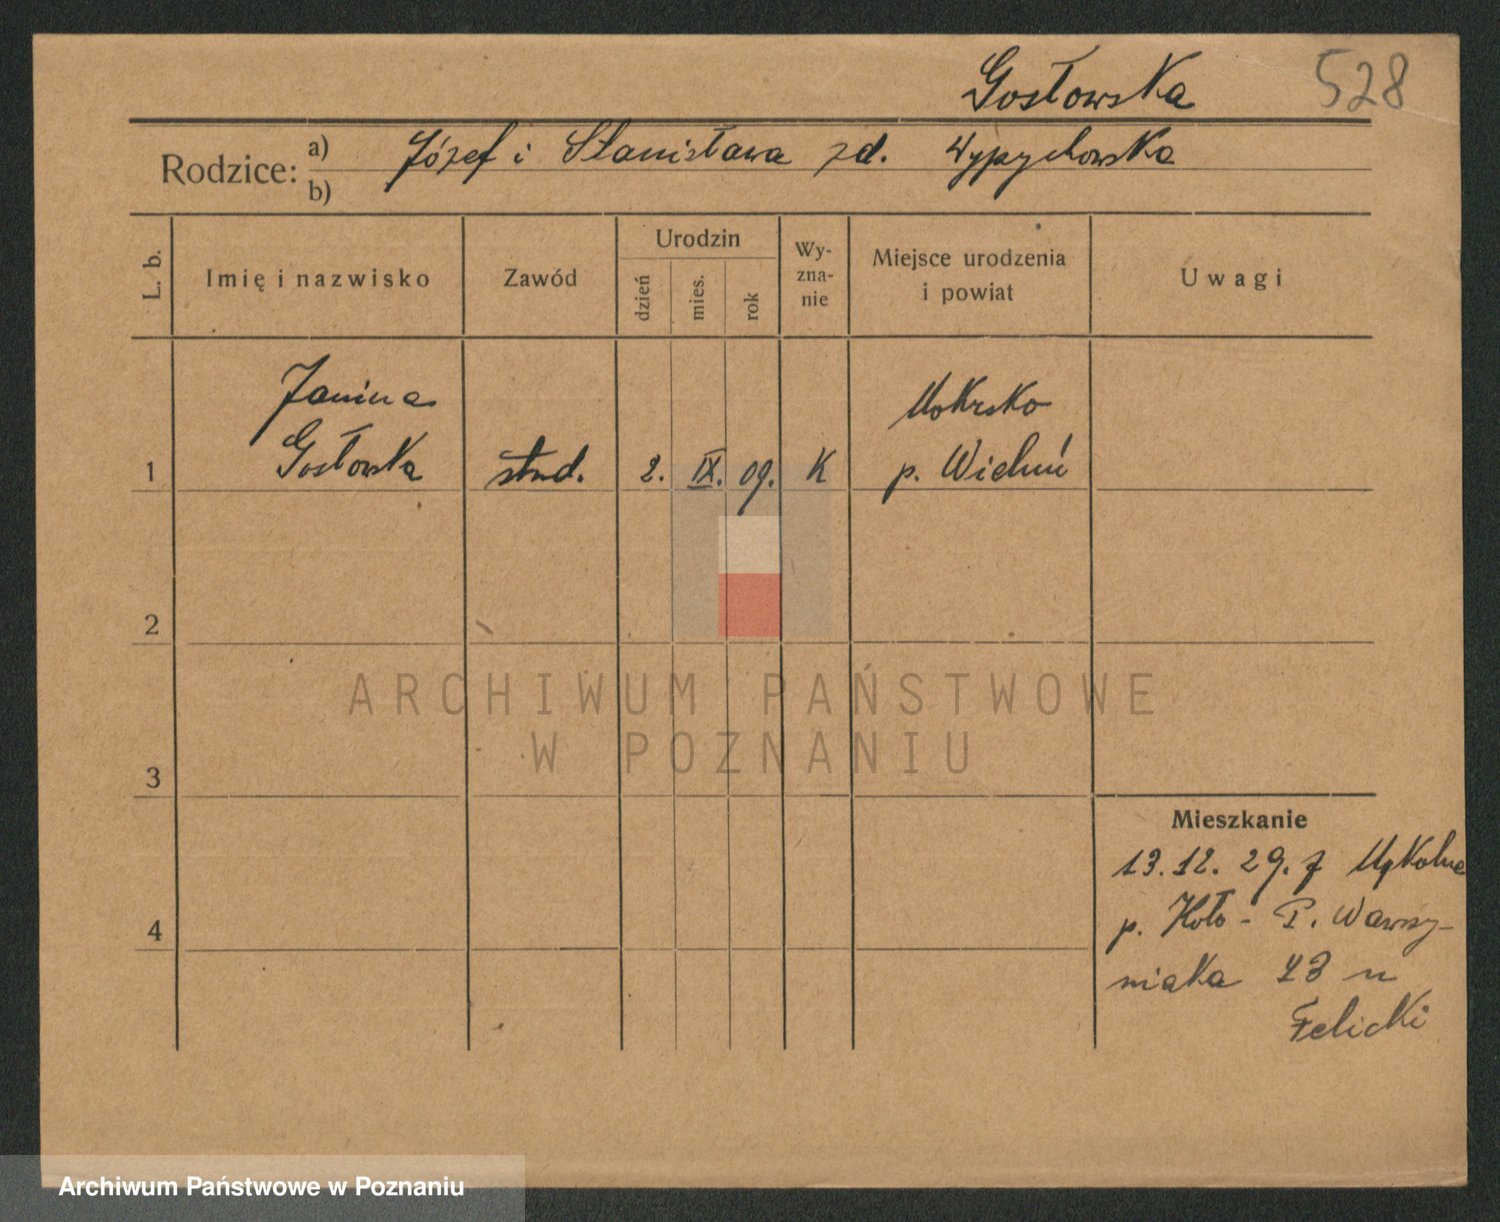 Gosłowska 528
Rodzice: a) Józef i Stanisława zd. Wypychowska
b)
L. b. Imię i nazwisko Zawód Urodzin dzień mies. rok Wyznanie Miejsce urodzenia i powiat Uwagi
Janina Mokrsko
1 Gosłowska stud. 2. IX. 09. K p. Wieluń
2
ARCHIWUM PAŃSTWOWE
W POZNANIU
3
Mieszkanie
13.12.29. z Mąkolna
4 p. Koło - P. Wawrzy-
niaka 23 u
Felicki
Archiwum Państwowe w Poznaniu